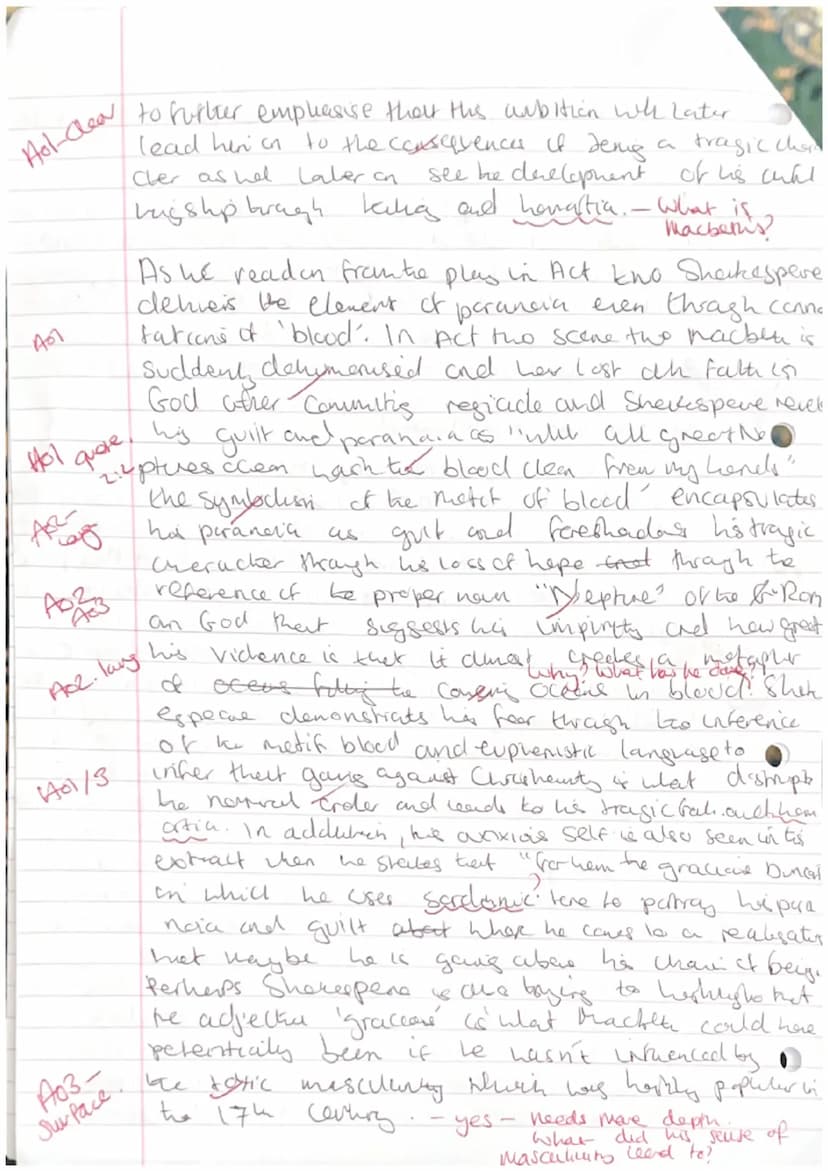 AO1-Clear to further emphasise that this ambition will later
lead him on to the consequences of being a tragic chara
cter as we later on see the development of his
kingship through killing and hamartia. – What is
Macbeth's?
As we read on from the play in Act two Shakespeare
delivers the element of paranoia even through conno
AO1 tations of 'blood'. In Act two scene two Macbeth is
suddenly and has lost all faith in
God after committing regicide and Shakespeare
AO1 quote. his guilt and paranoia as "will all great Ne
2:2 ptunes ocean wash this blood clean from my hands"
the symbolism of the motif of blood' encapsulates
AO2- lang his paranoia as guilt and foreshadows his tragic
character through his loss of hope through the
AO2 AO3 reference of the proper noun "Neptune" of the Rom
an God that suggests his impurity and how great
AO2. lang his violence is that it almost creates a metaphor
Why? What has he done?
of the covering oceans in blood. Shak
espeare demonstrates his fear through the inference
of the motif blood and euphemistic language to
AO1/3 infer that going against Christianity is what disrupts
the normal order and leads to his tragic and ham
artia. In addition, his anxious self is also seen in the
extract when he states that "for them the gracious Duncan
in which he uses sardonic? tone to portray his para
noia and guilt he comes to a realisation
that maybe he is going above his chain of being.
Perhaps Shakespeare is also trying to highlight that
the adjective 'gracious' is what Macbeth could have
potentially been if he wasn't influenced by
AO3- surface. the toxic masculinity which was highly popular in
the 17th Century. – yes – needs more depth.
What did his sense of
masculinity lead to?